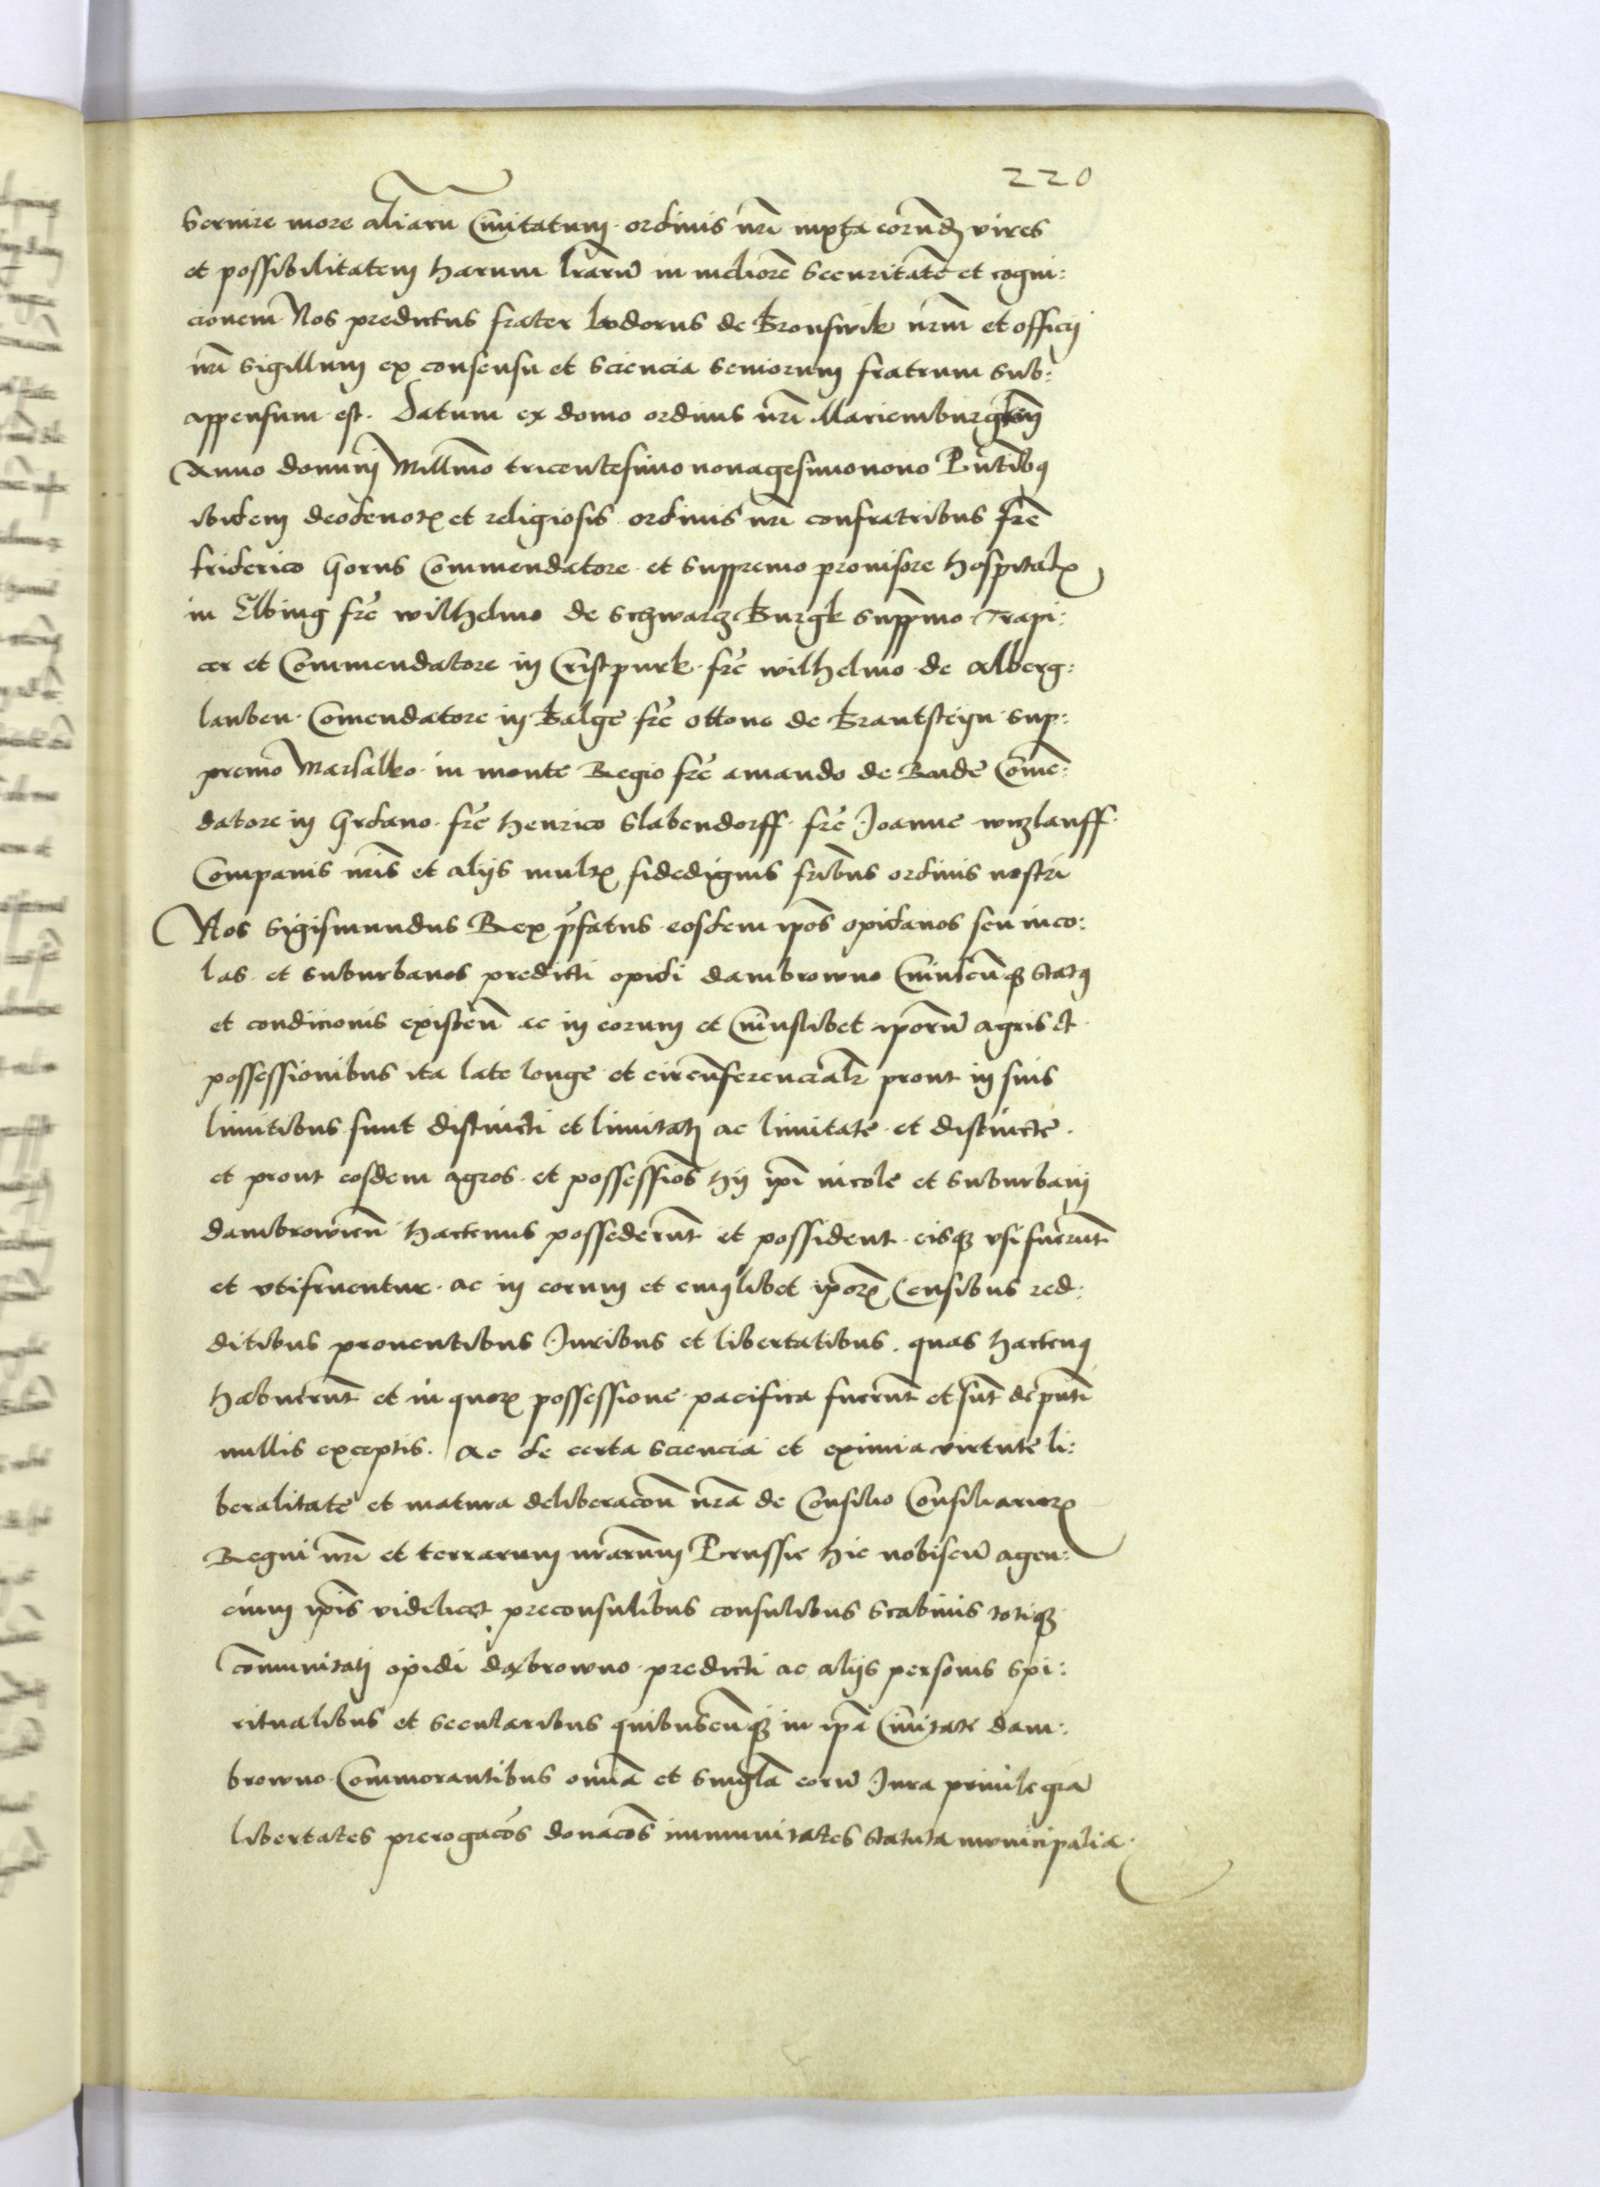 220
Seruire more aliarũ Ciuitatum ordinis nr̃i iuxta eorund̃ vires
et possibilitatem harum lrãrũ in meliorẽ securitatẽ et cogni:
cionem Nos predictus frater lodorus de Bronswik nr̃m et officij
nr̃i sigillum ex consensu et sciencia seniorum fratrum sub:
appensum est. Datum ex domo ordinis nr̃i Mariemburgkem̃
Anno domini Millm̃o tricentesimo nonagesimonono Pñtibq
ibidem deodenotꝭ et religiosis ordinis nr̃i confratribus frẽ
friderico Gorus Commendatore et suppremo prouisore hospitalꝭ
in Elbing frẽ wilhelmo de schwartz Burgk supp̃mo Trapi:
cer et Commendatore in Cristpurk frẽ wilhelmo de alberg:
lauben Comendatore in Balge frẽ ottone de Brantsteyn sup:
premo Marsalko in monte Regio frẽ amando de Baide Com̃e:
datore in Grdano frẽ henrico Slabendorff frẽ Joanne witzlauff
Companis nr̃is et alijs multꝭ fidedignis fr̃ibus ordinis nostri
Nos Sigismundus Rex p̃fatus eosdem ip̃os opidanos seu inco:
las et suburbanos predicti opidi dambrowno Cuiuscũqꝫ statq
et condicionis existen̄ ac in eorum et Cuiuslibet ip̃orũ agris et
possessionibus ita late longe et circũferencialꝭ prout in suis
limitibus sunt distincti et limitati ac limitate et distincte.
et prout eosdem agros et possessiõs hij ip̃i incole et suburbani
dambrowien̄ hactenus possederũt et possident eisqꝫ vsi fuerũt
et vtifruentur ac in eorum et cuiqlibet ip̃orꝝ Censibus red:
ditibus prouentibus Juribus et libertatibus. quas hactenq
habuerũt et in quorꝝ possessione pacifica fuerũt et sũt de p̃nti
nullis exceptis. Ac de certa sciencia et eximia virtute li:
beralitate et matura deliberacõn nr̃a de Consilio Consiliariorꝝ
Regni nr̃i et terrarum nr̃arum Prussie hic nobiscũ agen:
cium ip̃is videlicet preconsulibus consulibus scabinis totiqꝫ
com̃unitati opidi dãbrowno predicti ac alijs personis spi:
ritualibus et secularibus quibuscũqꝫ in ip̃a Ciuitate dam:
browno Commorantibus om̃ia et singl̃a eorũ Jura priuilegia
libertates prerogacõs donacõs immunitates statuta municipalia